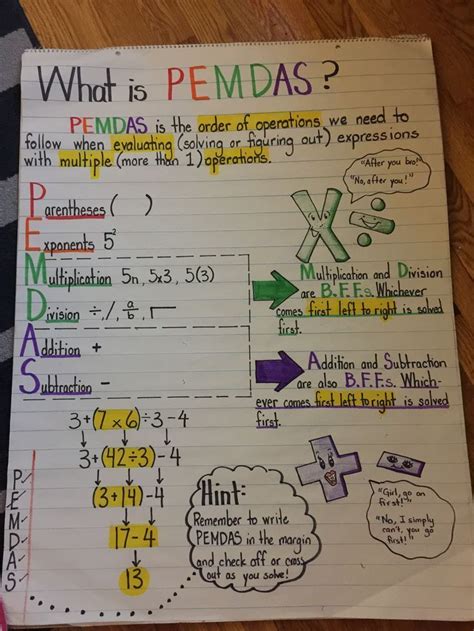 What is PEMDAS?
PEMDAS is the order of operations we need to
follow when evaluating (solving or figuring out) expressions
with multiple (more than 1) operations.
"After you bro!"
"No, after you!"
Parentheses ( )
Exponents 5²
Multiplication 5n, 5x3, 5(3)
Division ÷, /, a/b, ⟌
Addition +
Subtraction -
Multiplication and Division
are B.F.F.s. Whichever
comes first left to right is solved
first.
Addition and Subtraction
are also B.F.F.s. Which-
ever comes first left to right is solved
first.
3+(7x6)÷3-4
3+(42÷3)-4
(3+14)-4
17-4
13
P
E
M
D
A
S
Hint:
Remember to write
PEMDAS in the margin
and check off or cross
out as you solve!
"Girl, go on
first!"
"No, I simply
can't, you go
first!"